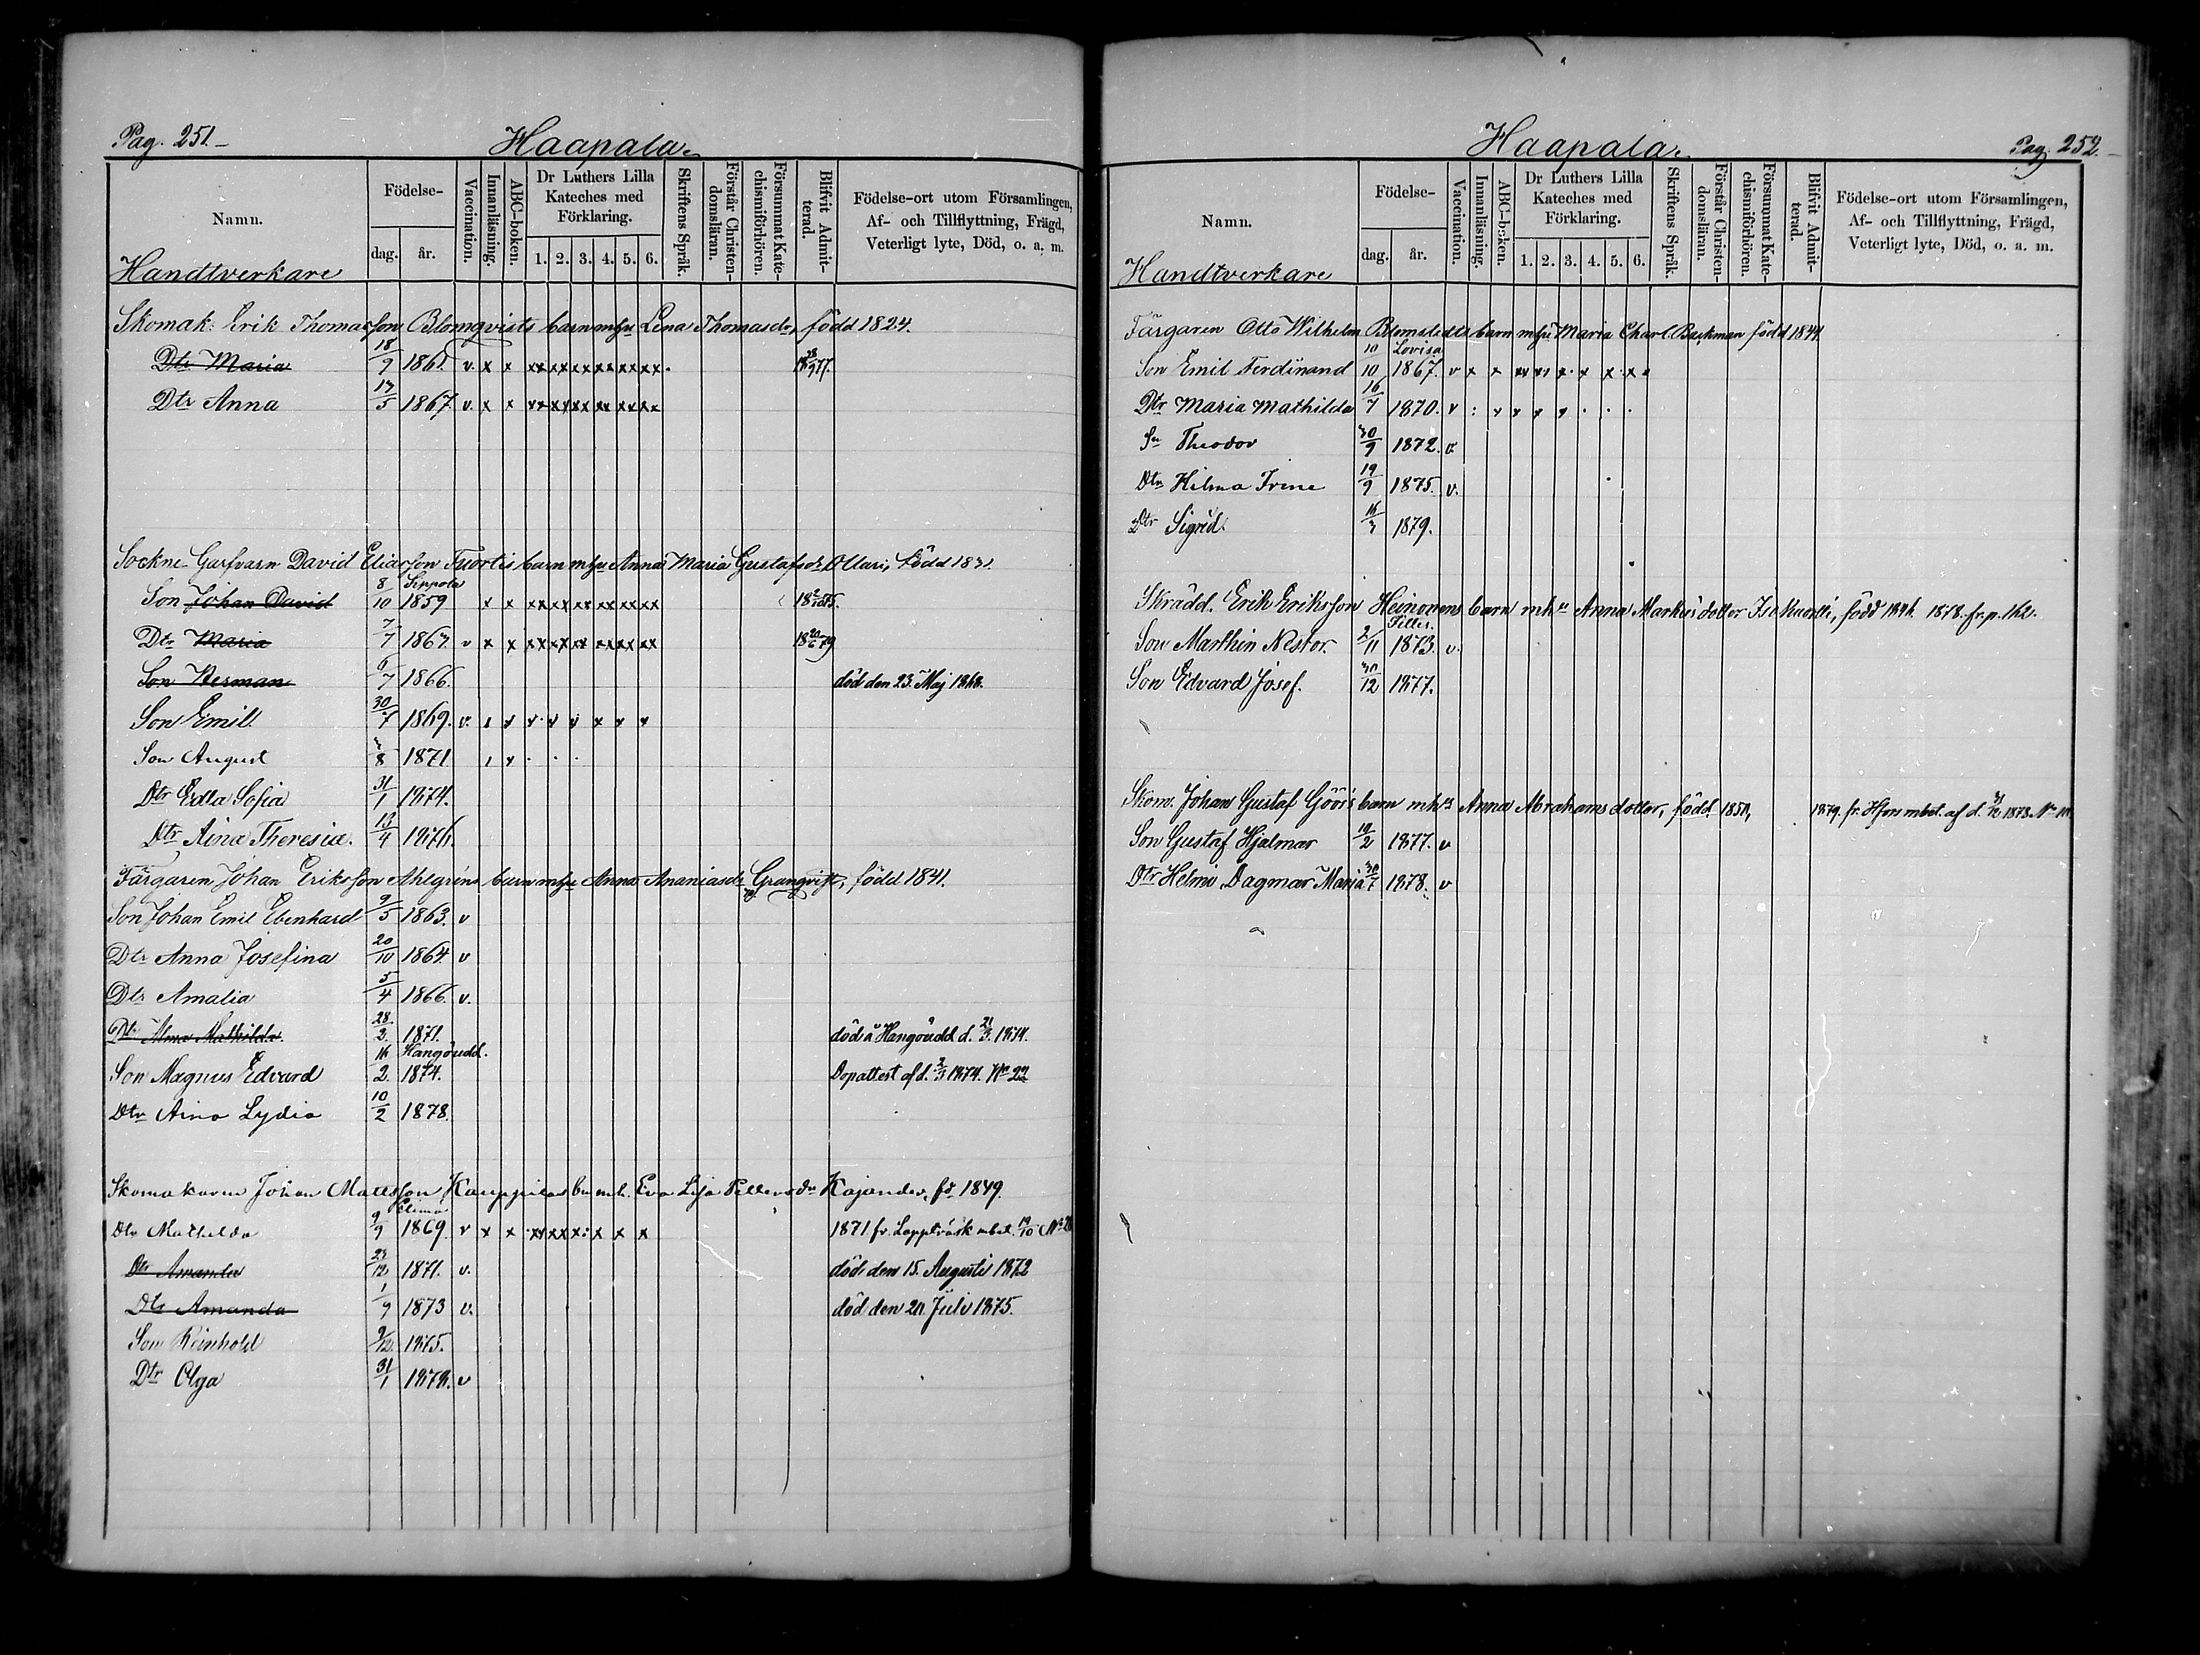 Pag. 251.
Haapala.
Namn.
Födelse-
dag.
år.
Vaccination.
Innanläsning.
ABC-boken.
Dr Luthers Lilla Kateches med Förklaring.
1. 2. 3. 4. 5. 6.
Skriftens Språk.
Förstår Christendomsläran.
Försummat Katechismiförhören.
Blifvit Admitterad.
Födelse-ort utom Församlingen, Af- och Tillflyttning, Frägd, Veterligt lyte, Död, o. a. m.
Handtverkare
Skomak. Erik Thomasson Blomqvists barn m hu Lena Thomasdr, född 1824.
Dtr Maria 18/9 1861. v. x x xx xx xx xx xx xx
Dtr Anna 13/5 1867. v. x x xx xx xx xx xx
Sockne Garfvarn David Eliasson Tuortis barn m hu Anna Maria Gustafsdr Ollari, född 1831.
Sippola
Son Johan David 8/10 1859 x x xx xx xx xx xx xx
Dtr Maria 7/7 1863. v x x xx xx xx xx xx xx 18 20/6 79
Son Herman 6/7 1866. död den 23. Maj 1868.
Son Emill 30/7 1869. v.
Son August 3/8 1871
Dtr Edla Sofia 31/1 1874.
Dtr Aina Theresia. 13/4 1876.
Färgaren Johan Eriksson Ahlgrens barn m hu Anna Ananiasdr Granqvist, född 1841.
Son Johan Emil Ebenhard 9/5 1863. v
Dtr Anna Josefina 20/10 1864. v
Dtr Amalia 5/4 1866. v.
Dtr Alma Mathilda. 28/2 1871. död å Hangöudd d. 21/3. 1874.
Hangöudd.
Son Magnus Edvard 16/2. 1874. Dopattest af d. 2/3 1874. No 22
Dtr Aina Lydia 10/2 1878.
Skomakaren Johan Matsson Kauppilas bn m h. Eva Lisa Pettersdr Kajander, fd. 1849.
Elimä
Dtr Mathilda 9/9 1869. v x x 1871 fr. Lappträsk m bet. 19/10 No
Dtr Amanda 23/12 1871. v. död den 15. Augusti 1872
Dtr Amanda 1/9 1873 v. död den 20. Juli 1875.
Son Reinhold 9/12 1875.
Dtr Olga 31/1 1878. v
Haapala.
Pag. 252.
Namn.
Födelse-
dag.
år.
Vaccination.
Innanläsning.
ABC-boken.
Dr Luthers Lilla Kateches med Förklaring.
1. 2. 3. 4. 5. 6.
Skriftens Språk.
Förstår Christendomsläran.
Försummat Katechismiförhören.
Blifvit Admitterad.
Födelse-ort utom Församlingen, Af- och Tillflyttning, Frägd, Veterligt lyte, Död, o. a. m.
Handtverkare
Färgaren Otto Wilhelm Blomstedts barn m hu Maria Charl. Backman född 1844.
Lovisa
Son Emil Ferdinand 10/10 1867. v x x
Dtr Maria Mathilda 16/7 1870. v
Sn Theodor 30/9 1872. v.
Dtr Hilma Irene 19/9 1875. v.
Dtr Sigrid. 16/3 1879.
Skrädd. Erik Eriksson Heinonens barn m hu Anna Markusdotter Isokuortti, född 1846. 1878. fr. p.
Son Marthin Nestor. 2/11 1873. v.
Son Edvard Josef. 30/12 1877.
Skom. Johan Gustaf Göös's barn m hu Anna Abrahamsdotter, född 1850, 1879. fr. Hfors m bet. af d. 1878. No
Son Gustaf Hjalmar 19/2 1877. v
Dtr Helmi Dagmar Maria 30/7 1878. v